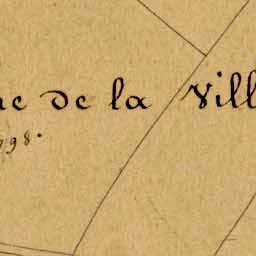 ne de la Vill
798.